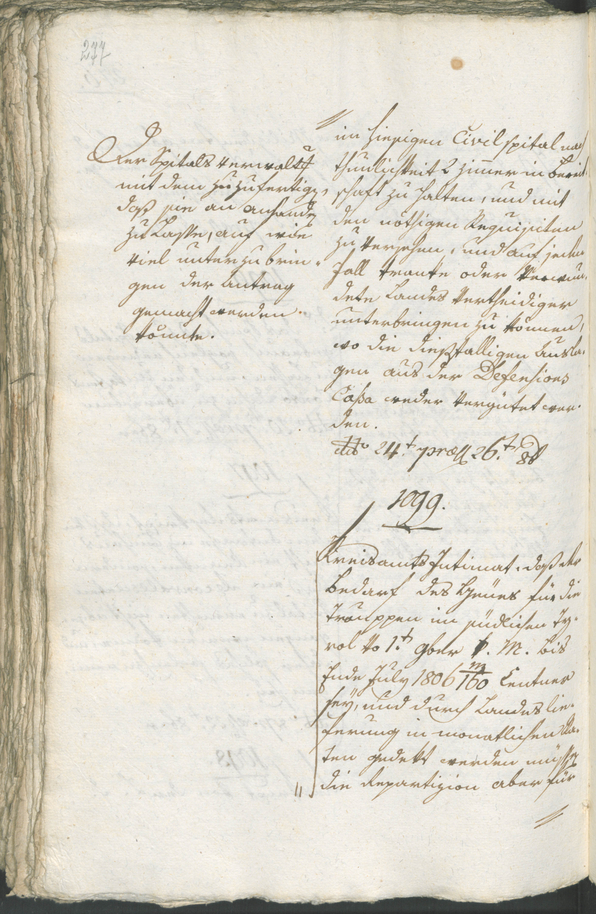 277
Der Spitals Verwaltg
mit dem zuzufertigen,
daß sie an anhand
zu Lassen, auf wie
viel unterzubrin-
gen der Antrag
gemacht werden
könnte.
im hiesigen Civilspital nach
thunlichkeit 2 Zimmer in Bereit
schaft zu halten, und mit
den nöthigen Requisiten
zu versehen, und auf jeden
Fall kranke oder Verwun-
dete Landes Vertheidiger
unterbringen zu können,
wo die dießfälligen Ausla-
gen aus der Defensions
Cassa weder vergütet wer-
den.
dto 24t praes 26t 8b
1099.
Kreisamts Intimat, daß der
Bedarf des Heües für die
Trouppen im südlichen Ty-
rol vo 1t 9ber d. M. bis
Ende July 1806 m/160 Centner
sey, und durch Landeslie-
ferung in monatlichen Ra-
ten gedekt werden müsse,
die Repartizion aber für